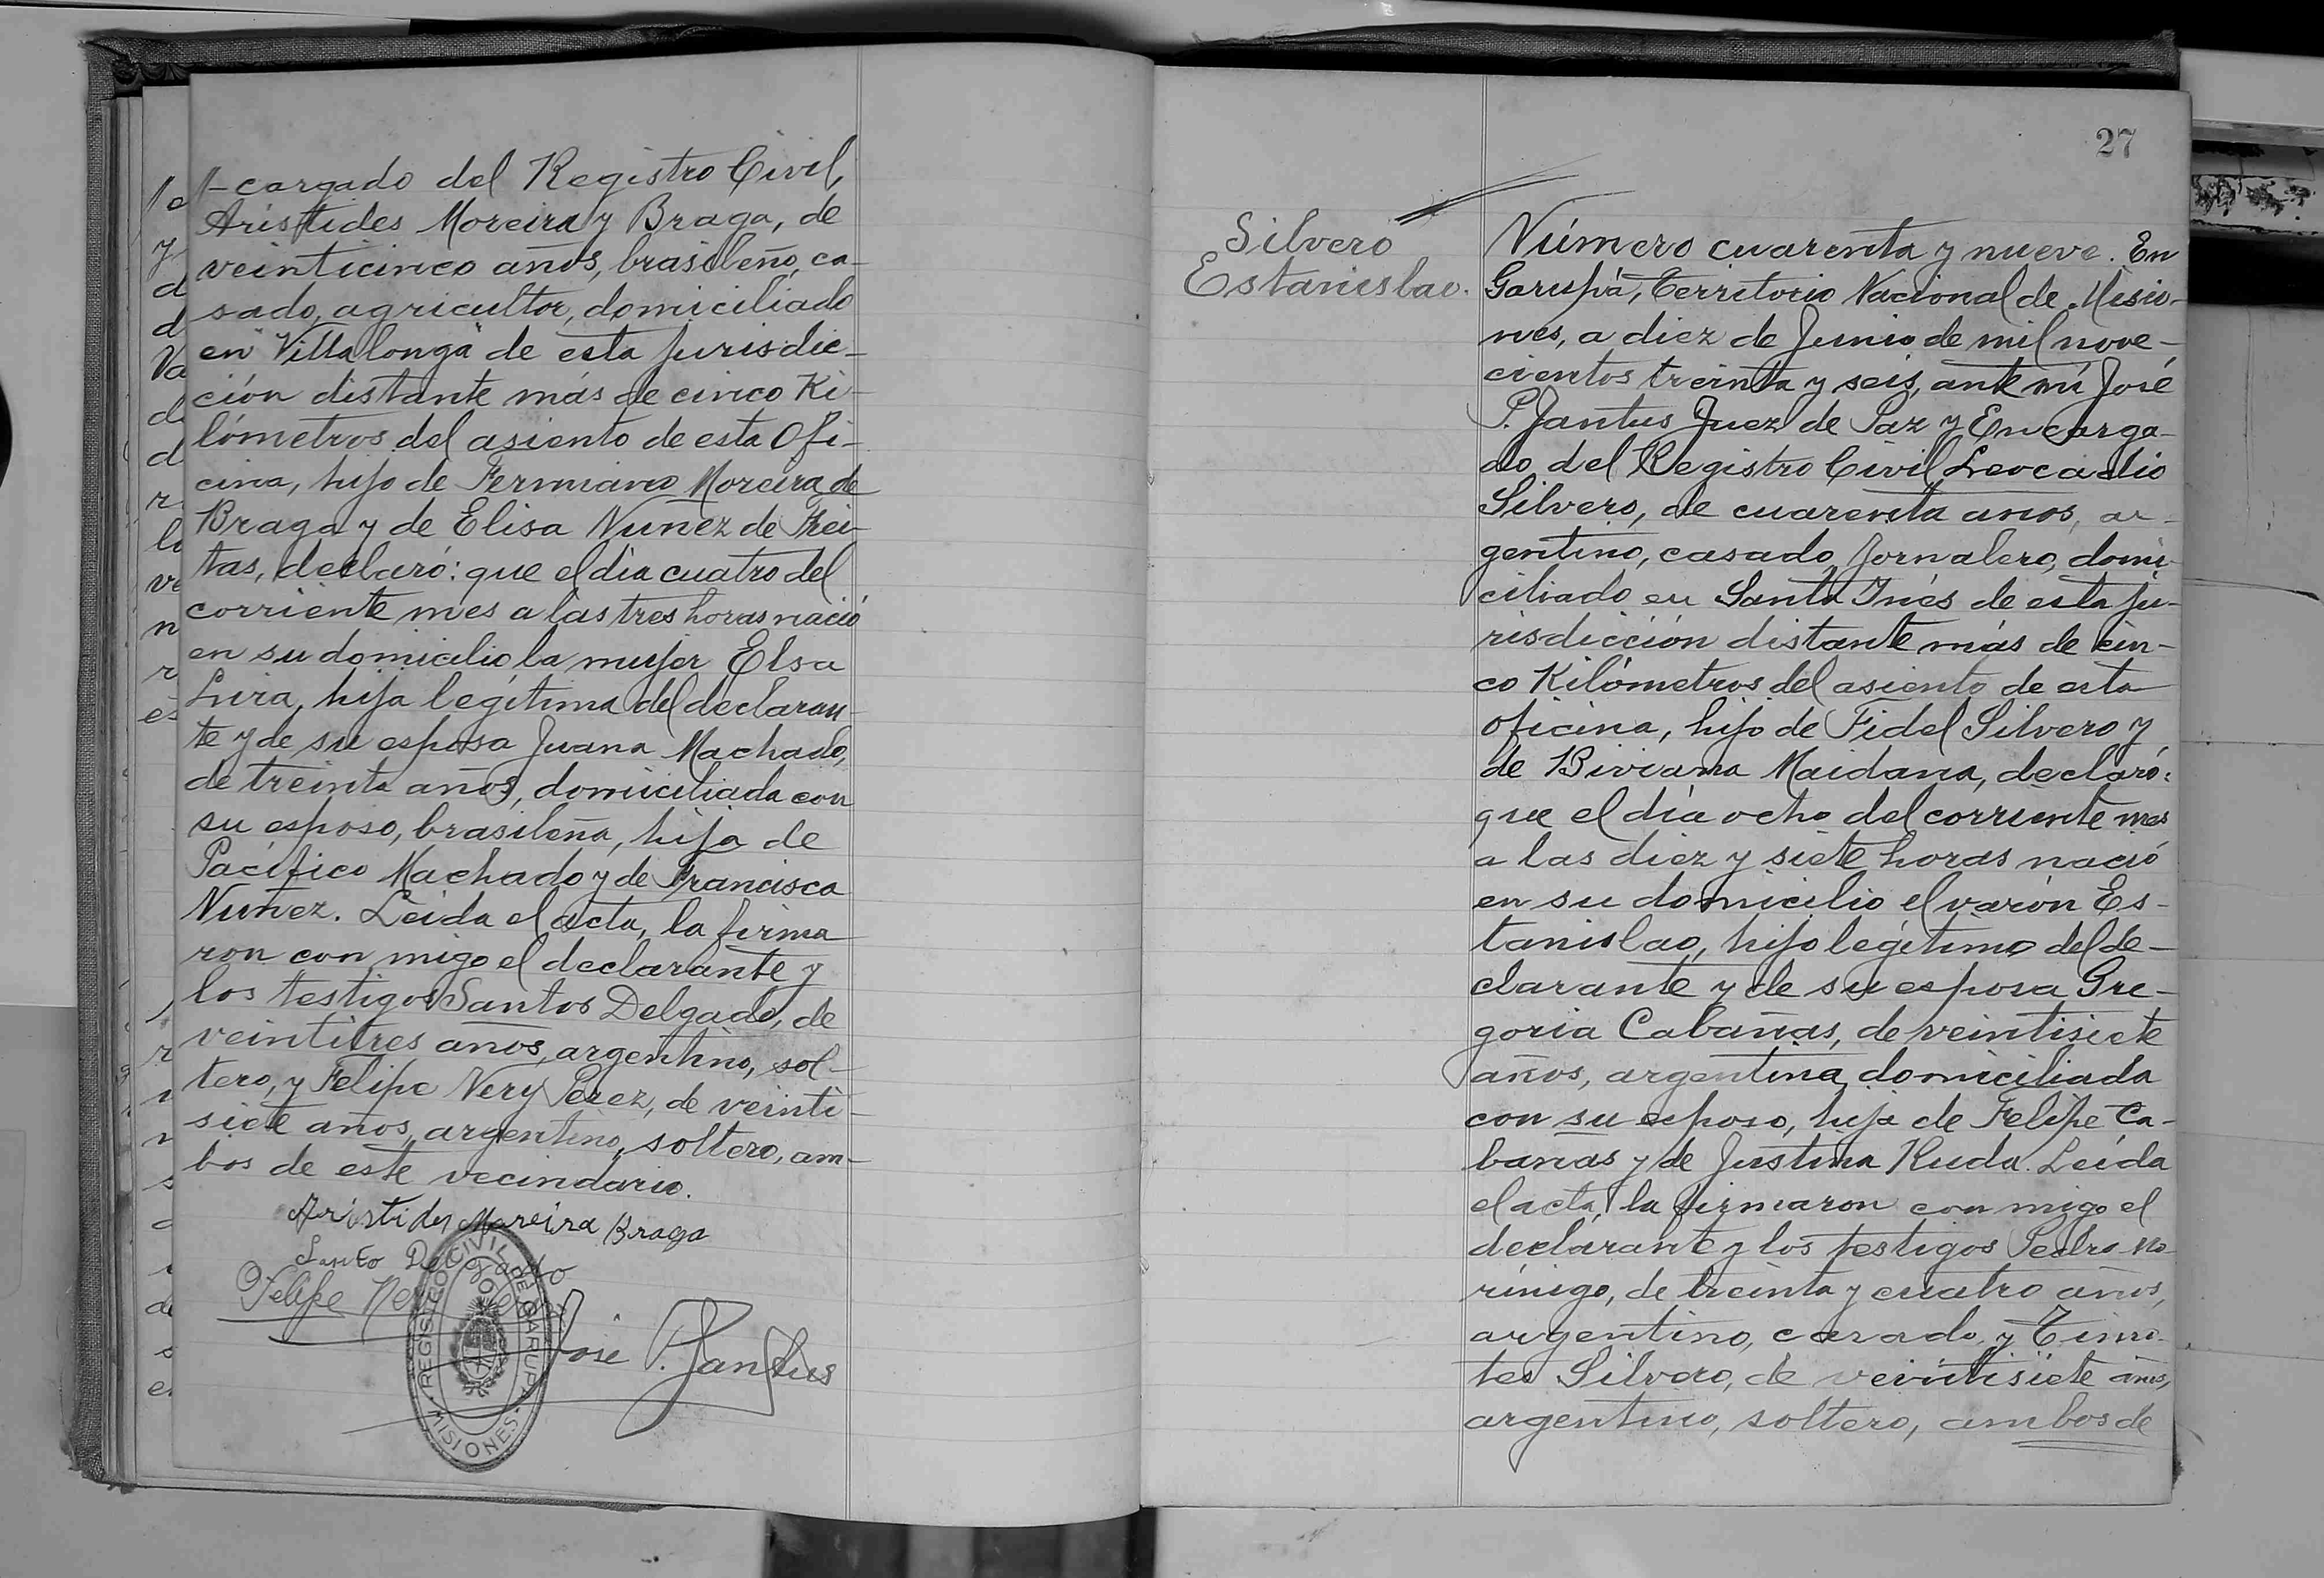 cargado del Registro Civil,
Arístides Moreira y Braga, de
veinticinco años, brasileño, ca-
sado, agricultor, domiciliado
en "Villalonga" de esta jurisdic-
ción distante más de cinco Ki-
lómetros del asiento de esta Ofi-
cina, hijo de Fermiano Moreira de
Braga y de Elisa Nuñez de Frei-
tas, declaró: que el día cuatro del
corriente mes a las tres horas nació
en su domicilio, la mujer Elsa
Lira, hija legítima del declaran-
te y de su esposa Juana Machado,
de treinta años, domiciliada con
su esposo, brasileña, hija de
Pacífico Machado y de Francisca
Nuñez. Leida el acta, la firma
ron con migo el declarante y
los testigos Santos Delgado, de
veintitres años, argentino, sol-
tero, y Felipe Nery Perez, de veinti-
siete años, argentino, soltero, am-
bos de este vecindario.
Aristides Mareira Braga
Santo Delgado
Felipe Ner
José P. Jantus
REGISTRO CIVIL DE GARUPA
MISIONES
27
Silvero
Estanislao.
Número cuarenta y nueve. En
Garupá, Territorio Nacional de Misio-
nes, a diez de Junio de mil nove-
cientos treinta y seis, ante mí José
P. Jantus Juez de Paz y Encarga-
do del Registro Civil Leocadio
Silvero, de cuarenta años, ar-
gentino, casado, Jornalero, domi-
ciliado en Santa Inés de esta ju-
risdicción distante más de cin-
co Kilómetros del asiento de esta
oficina, hijo de Fidel Silvero y
de Biviana Maidana, declaró:
que el día ocho del corriente mes
a las diez y siete horas nació
en su domicilio el varón Es-
tanislao, hijo legítimo del de-
clarante y de su esposa Gre-
goria Cabañas, de veintisiete
años, argentina, domiciliada
con su esposo, hija de Felipe Ca-
bañas y de Justina Ruda. Leída
el acta, la firmaron con migo el
declarante y los testigos Pedro No-
rinigo, de treinta y cuatro años,
argentino, casado, y Timo-
teo Silvero, de veintisiete años,
argentino, soltero, ambos de